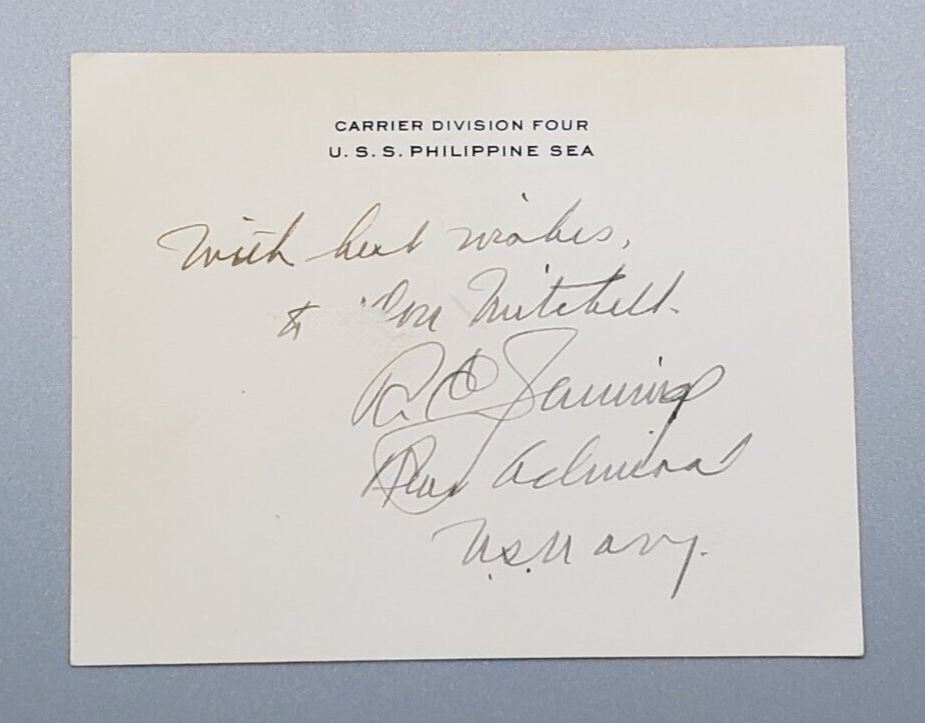 CARRIER DIVISION FOUR
U. S. S. PHILIPPINE SEA
With best wishes,
to Don Mitchell.
R. O. Jennings
Rear Admiral
U.S. Navy.